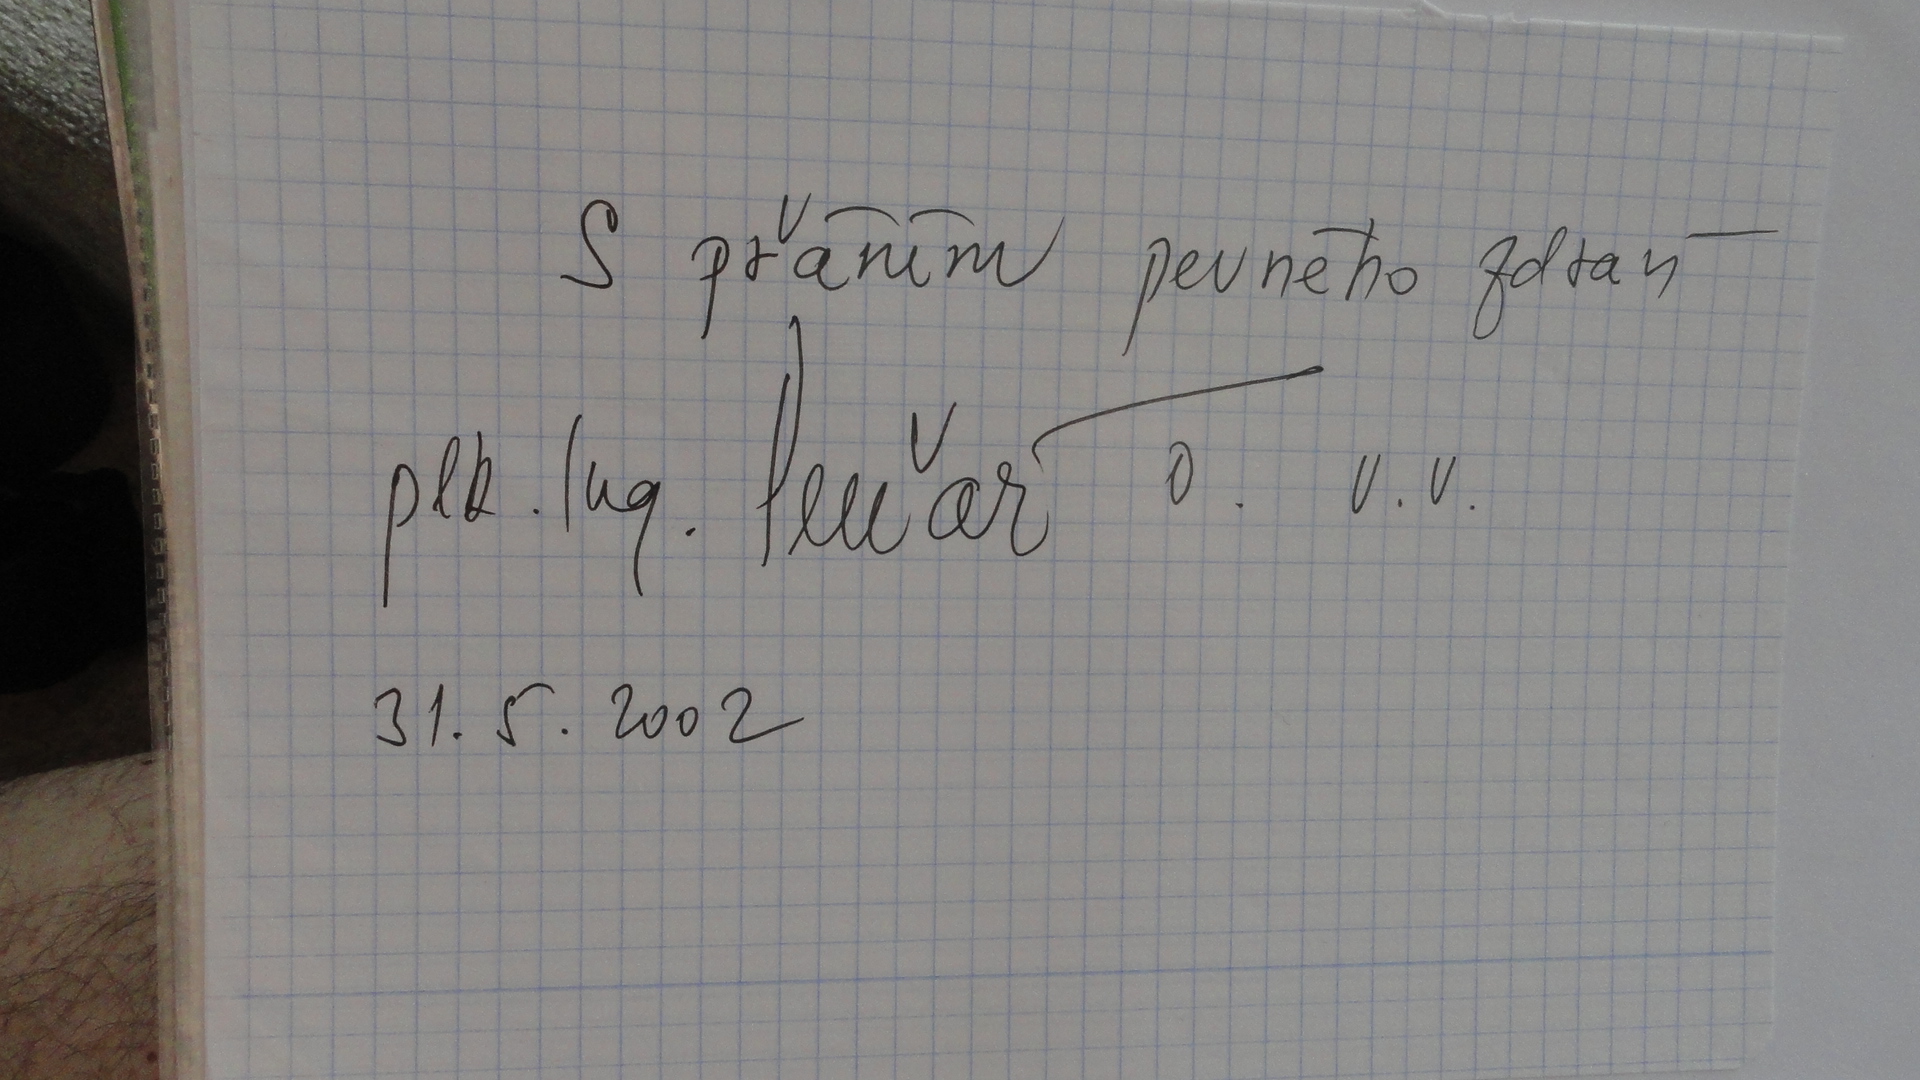 S přáním pevného zdraví
plk. Ing. Pelčár O. v.v.
31.5.2002